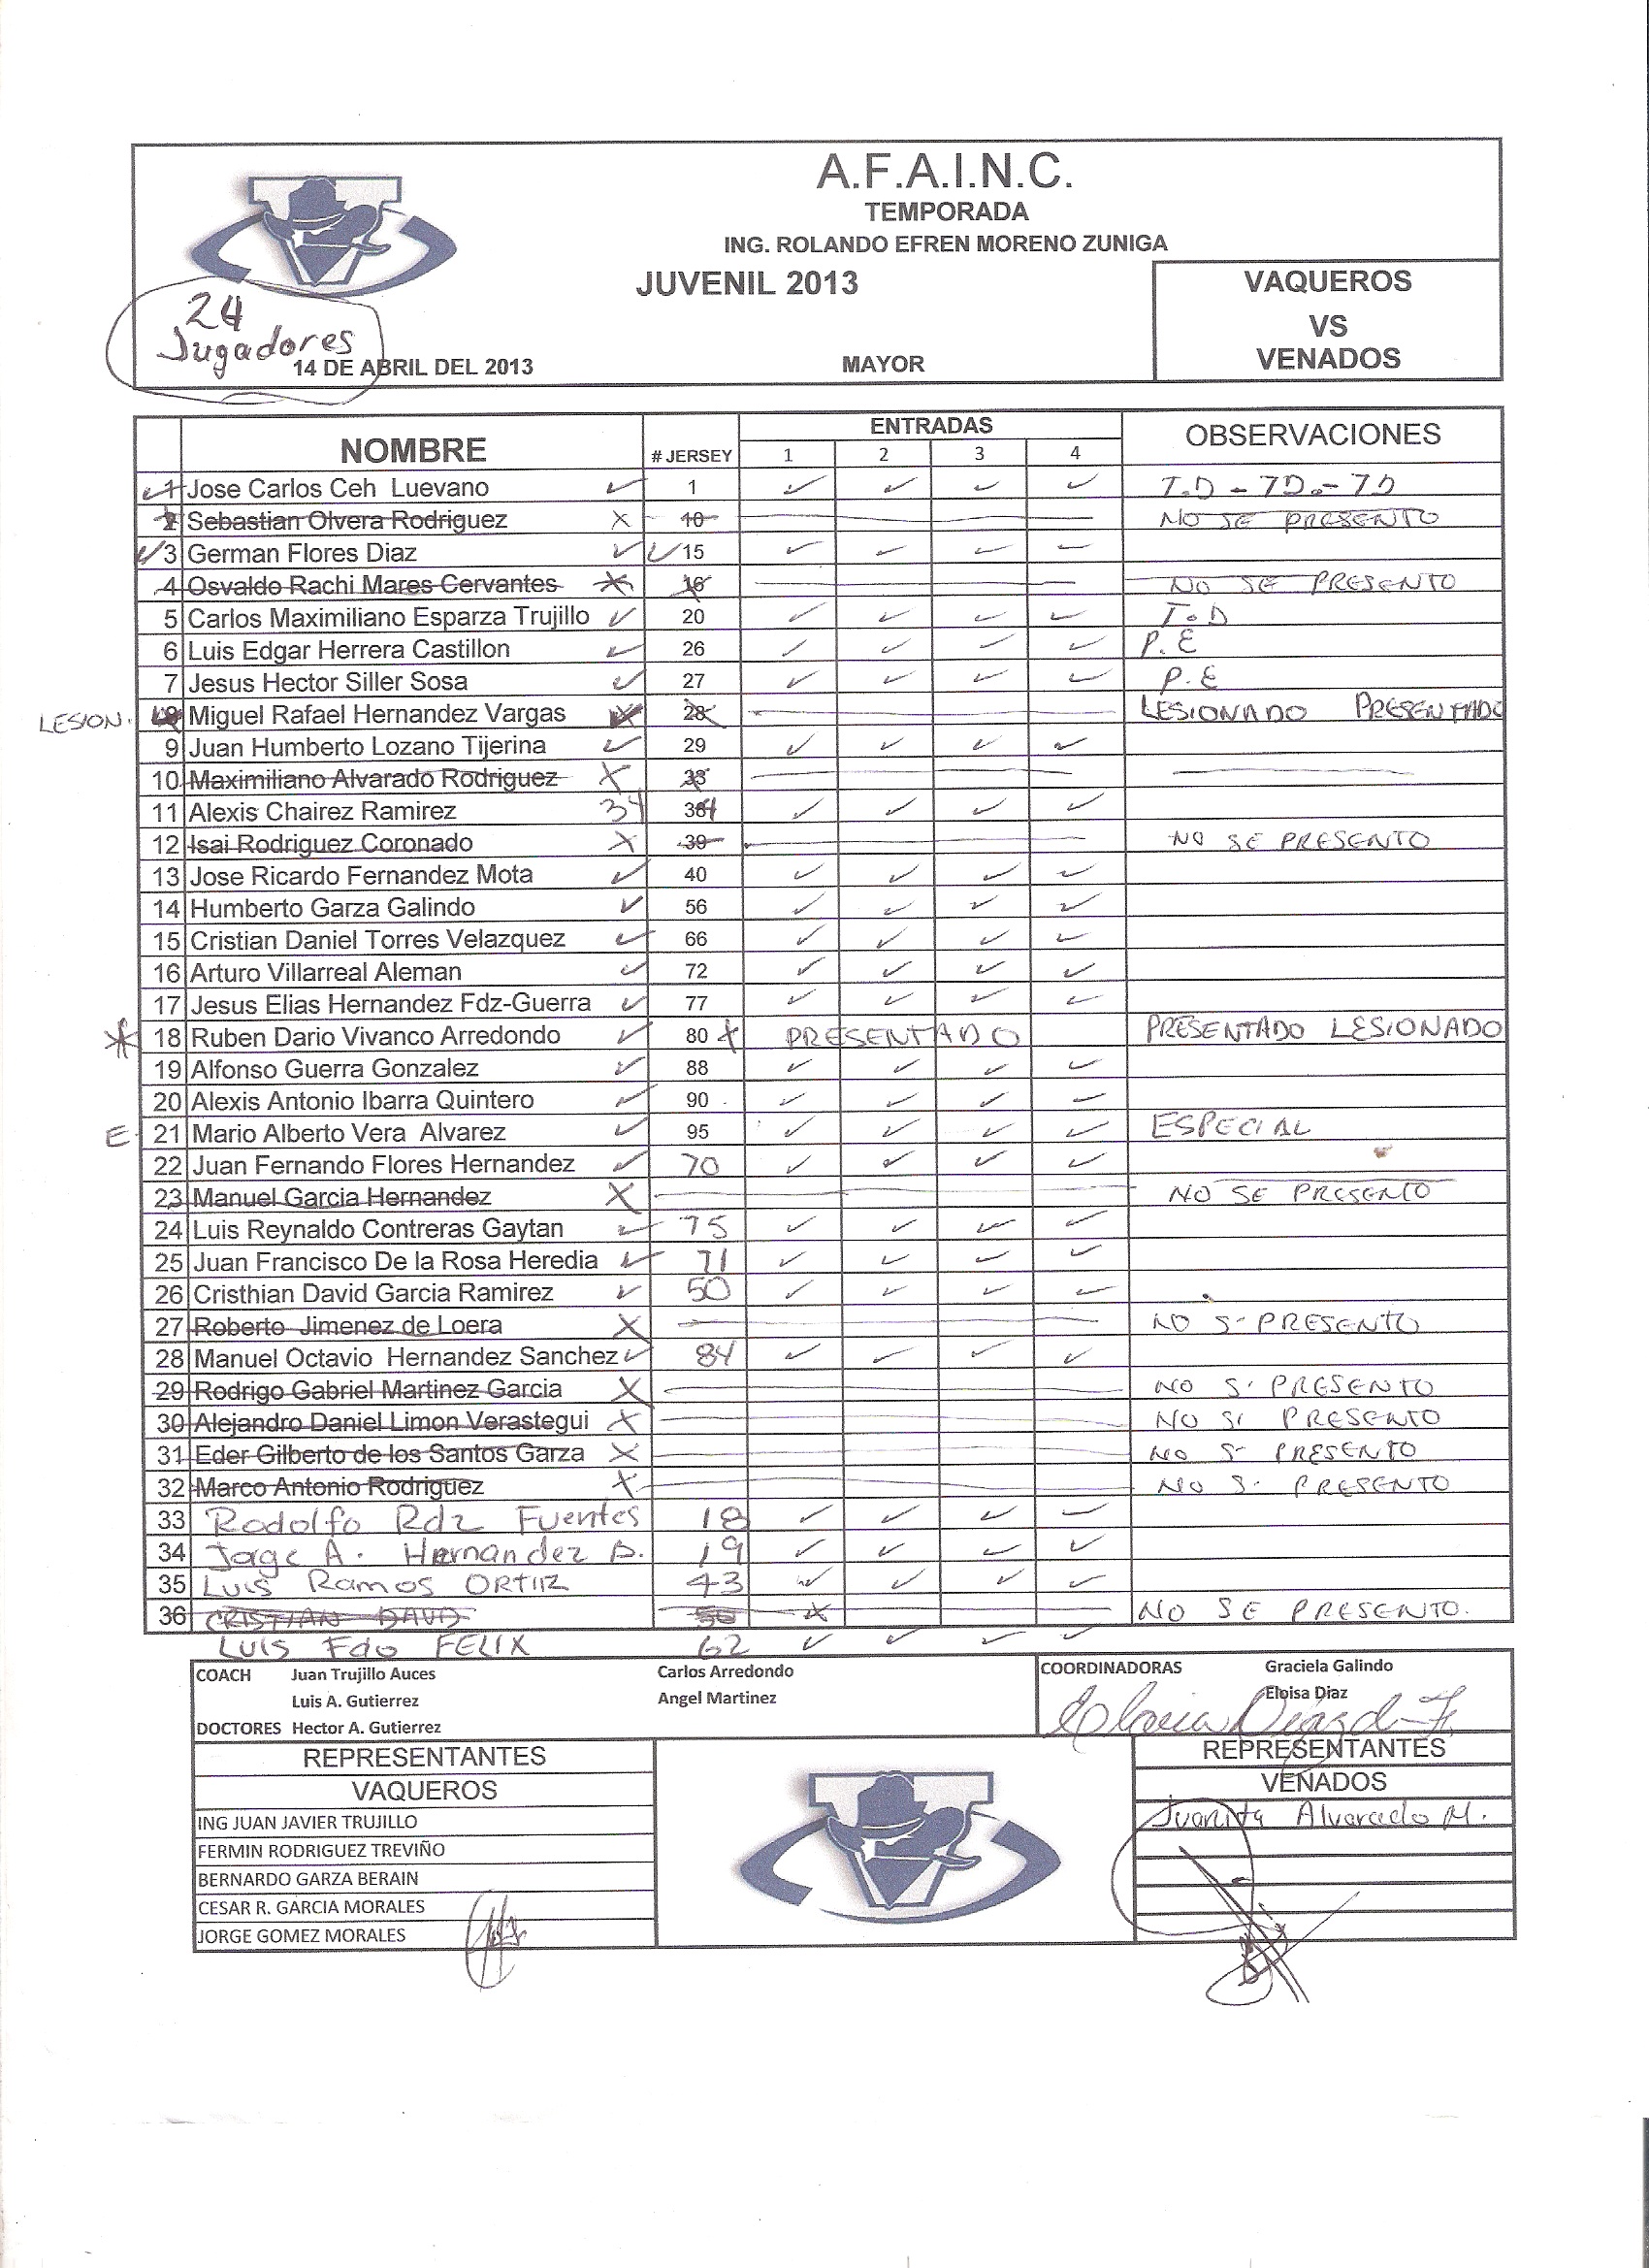 A.F.A.I.N.C.
TEMPORADA
ING. ROLANDO EFREN MORENO ZUNIGA
JUVENIL 2013
VAQUEROS
VS
VENADOS
24
Jugadores
14 DE ABRIL DEL 2013 MAYOR
NOMBRE # JERSEY ENTRADAS OBSERVACIONES
1 2 3 4
1 Jose Carlos Ceh Luevano ✓ 1 ✓ ✓ ✓ ✓ T.D - TD.- TD
2 Sebastian Olvera Rodriguez X 10 NO SE PRESENTO
✓ 3 German Flores Diaz ✓ ✓ 15 ✓ ✓ ✓ ✓
4 Osvaldo Rachi Mares Cervantes X 16 NO SE PRESENTO
5 Carlos Maximiliano Esparza Trujillo ✓ 20 ✓ ✓ ✓ ✓ T.D
6 Luis Edgar Herrera Castillon ✓ 26 ✓ ✓ ✓ ✓ P.E
7 Jesus Hector Siller Sosa ✓ 27 ✓ ✓ ✓ ✓ P.E
LESION. 8 Miguel Rafael Hernandez Vargas X 28 LESIONADO PRESENTADO
9 Juan Humberto Lozano Tijerina ✓ 29 ✓ ✓ ✓ ✓
10 Maximiliano Alvarado Rodriguez X 33
11 Alexis Chairez Ramirez 34 34 ✓ ✓ ✓ ✓
12 Isai Rodriguez Coronado X 39 NO SE PRESENTO
13 Jose Ricardo Fernandez Mota ✓ 40 ✓ ✓ ✓ ✓
14 Humberto Garza Galindo ✓ 56 ✓ ✓ ✓ ✓
15 Cristian Daniel Torres Velazquez ✓ 66 ✓ ✓ ✓ ✓
16 Arturo Villarreal Aleman ✓ 72 ✓ ✓ ✓ ✓
17 Jesus Elias Hernandez Fdz-Guerra ✓ 77 ✓ ✓ ✓ ✓
* 18 Ruben Dario Vivanco Arredondo ✓ 80 X PRESENTADO PRESENTADO LESIONADO
19 Alfonso Guerra Gonzalez ✓ 88 ✓ ✓ ✓ ✓
20 Alexis Antonio Ibarra Quintero ✓ 90 ✓ ✓ ✓ ✓
E 21 Mario Alberto Vera Alvarez ✓ 95 ✓ ✓ ✓ ✓ ESPECIAL
22 Juan Fernando Flores Hernandez ✓ 70 ✓ ✓ ✓ ✓
23 Manuel Garcia Hernandez X NO SE PRESENTO
24 Luis Reynaldo Contreras Gaytan ✓ 75 ✓ ✓ ✓ ✓
25 Juan Francisco De la Rosa Heredia ✓ 71 ✓ ✓ ✓ ✓
26 Cristhian David Garcia Ramirez ✓ 50 ✓ ✓ ✓ ✓
27 Roberto Jimenez de Loera X NO S- PRESENTO
28 Manuel Octavio Hernandez Sanchez ✓ 84 ✓ ✓ ✓ ✓
29 Rodrigo Gabriel Martinez Garcia X NO S. PRESENTO
30 Alejandro Daniel Limon Verastegui X NO S. PRESENTO
31 Eder Gilberto de los Santos Garza X NO S- PRESENTO
32 Marco Antonio Rodriguez X NO S. PRESENTO
33 Rodolfo Rdz Fuentes 18 ✓ ✓ ✓ ✓
34 Jorge A. Hernandez D. 19 ✓ ✓ ✓ ✓
35 LUIS RAMOS ORTIZ 43 ✓ ✓ ✓ ✓
36 CRISTIAN DAVD 50 X NO SE PRESENTO.
LUIS Fdo FELIX 62 ✓ ✓ ✓ ✓
COACH Juan Trujillo Auces Carlos Arredondo COORDINADORAS Graciela Galindo
Luis A. Gutierrez Angel Martinez Eloisa Diaz
DOCTORES Hector A. Gutierrez
REPRESENTANTES
VAQUEROS
ING JUAN JAVIER TRUJILLO
FERMIN RODRIGUEZ TREVIÑO
BERNARDO GARZA BERAIN
CESAR R. GARCIA MORALES
JORGE GOMEZ MORALES
REPRESENTANTES
VENADOS
Juanita Alvarado M.